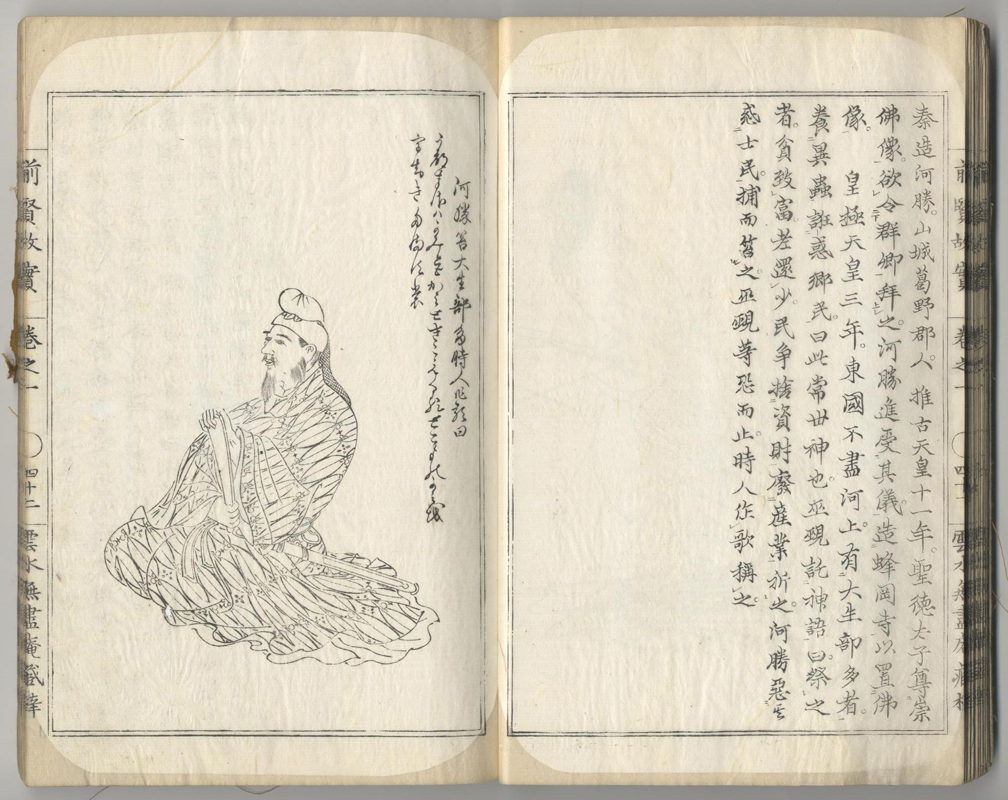 秦造河勝。山城葛野郡人。推古天皇十一年。聖徳太子尊崇
佛像。欲令群卿拜之。河勝進受其儀。造蜂岡寺以置佛
像。皇極天皇三年。東國不盡河上。有大生部多者。
養異蟲誑惑鄉民。曰此常世神也。巫覡託神語曰祭之
者。貧致富老還少民争捨資財廢産業祈之。河勝惡其
惑士民。捕而笞之。巫覡等恐而止。時人作歌稱之
河勝笞大生部多時人作歌曰
前賢故實 卷之一 四十二 雲水無盡庵藏梓